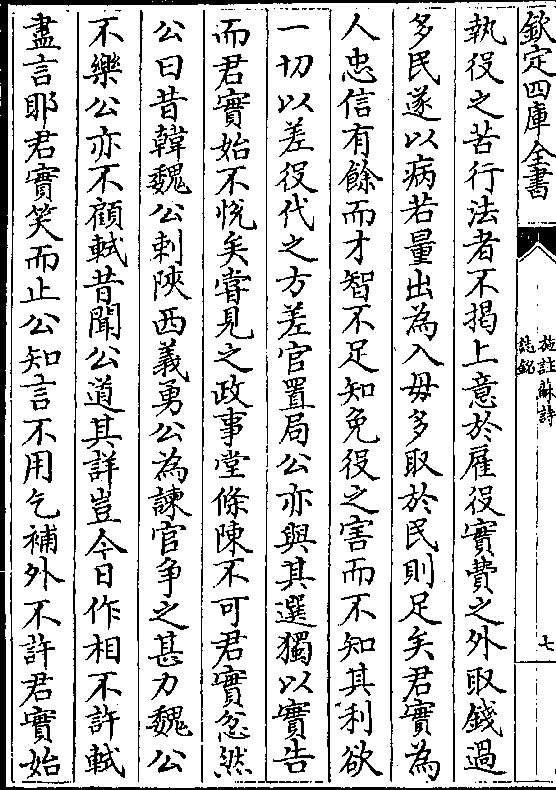 欽定四庫全書
施註蘇詩
誌銘
七
執役之苦行法者不揭上意於雇役實費之外取錢過
多民遂以病若量出為入毋多取於民則足矣君實為
人忠信有餘而才智不足知免役之害而不知其利欲
一切以差役代之方差官置局公亦與其選獨以實告
而君實始不悅矣嘗見之政事堂條陳不可君實忿然
公曰昔韓魏公刺陝西義勇公為諫官爭之甚力魏公
不樂公亦不顧軾昔聞公道其詳豈今日作相不許軾
盡言耶君實笑而止公知言不用乞補外不許君實始